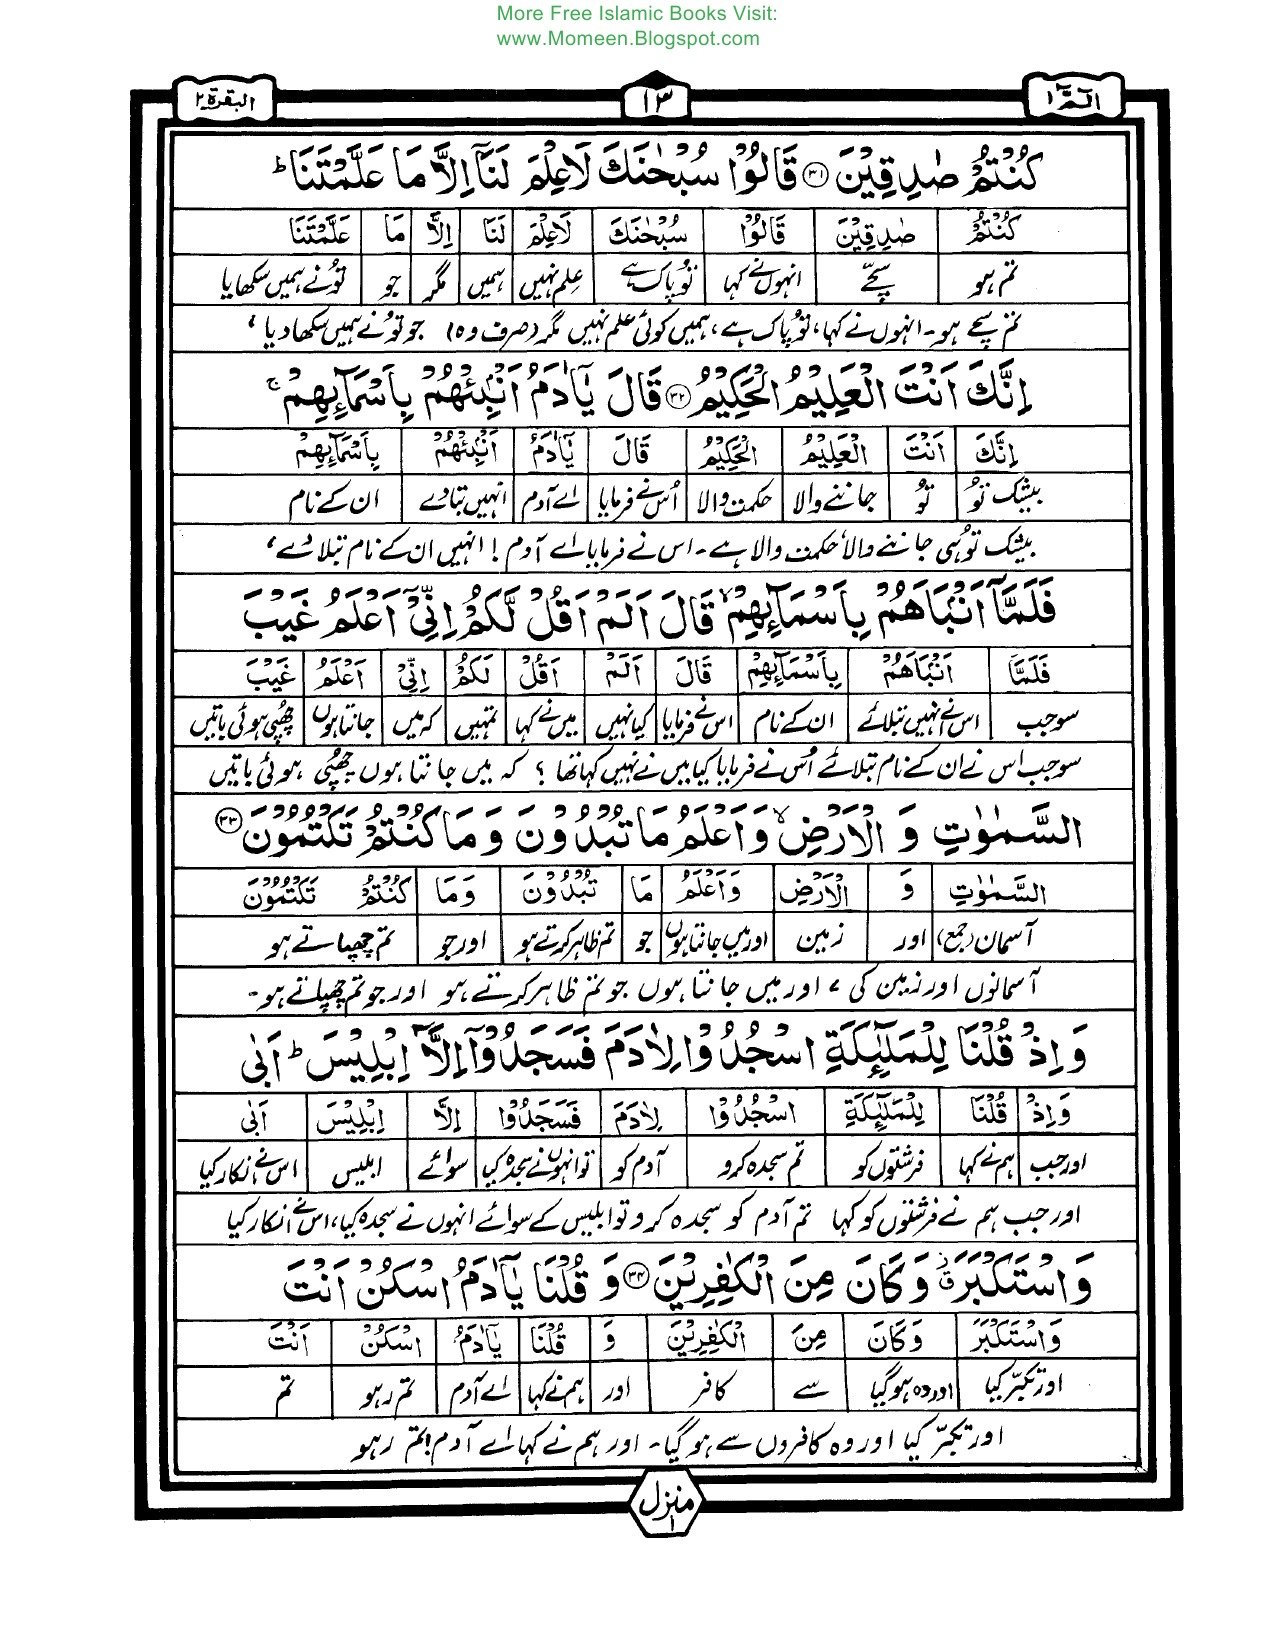 More Free Islamic Books Visit:
www.Momeen.Blogspot.com
الٓمّٓ ۱ ۱۳ البقرة ۲
كُنْتُمْ صٰدِقِيْنَ ۳۱ قَالُوْا سُبْحٰنَكَ لَا عِلْمَ لَنَآ اِلَّا مَا عَلَّمْتَنَا ؕ
كُنْتُمْ صٰدِقِيْنَ قَالُوْا سُبْحٰنَكَ لَاعِلْمَ لَنَا اِلَّا مَا عَلَّمْتَنَا
تم ہو سچّے انہوں نے کہا تو پاک ہے علم نہیں ہمیں مگر جو تونے ہمیں سکھایا
تم سچے ہو۔ انہوں نے کہا، تو پاک ہے، ہمیں کوئی علم نہیں مگر (صرف وہ) جو تونے ہمیں سکھا دیا،
اِنَّكَ اَنْتَ الْعَلِيْمُ الْحَكِيْمُ ۳۲ قَالَ يٰٓاٰدَمُ اَنْۢبِئْهُمْ بِاَسْمَآئِهِمْ ۚ
اِنَّكَ اَنْتَ الْعَلِيْمُ الْحَكِيْمُ قَالَ يٰٓاٰدَمُ اَنْۢبِئْهُمْ بِاَسْمَآئِهِمْ
بیشک تو تو جاننے والا حکمت والا اُس نے فرمایا اے آدم انہیں بتادے ان کے نام
بیشک تو ہی جاننے والا، حکمت والا ہے۔ اس نے فرمایا اے آدم! انہیں ان کے نام بتلا دے،
فَلَمَّآ اَنْۢبَاَهُمْ بِاَسْمَآئِهِمْ ۙ قَالَ اَلَمْ اَقُلْ لَّكُمْ اِنِّيْٓ اَعْلَمُ غَيْبَ
فَلَمَّا اَنْۢبَاَهُمْ بِاَسْمَآئِهِمْ قَالَ اَلَمْ اَقُلْ لَكُمْ اِنِّيْ اَعْلَمُ غَيْبَ
سو جب اس نے انہیں بتلائے ان کے نام اس نے فرمایا کیا نہیں میں نے کہا تمہیں کہ میں جانتا ہوں چھپی ہوئی باتیں
سو جب اس نے ان کے نام بتلائے اُس نے فرمایا کیا میں نے نہیں کہا تھا؟ کہ میں جانتا ہوں چھپی ہوئی باتیں
السَّمٰوٰتِ وَ الْاَرْضِ ۙ وَاَعْلَمُ مَا تُبْدُوْنَ وَ مَا كُنْتُمْ تَكْتُمُوْنَ ۳۳
السَّمٰوٰتِ وَ الْاَرْضِ وَاَعْلَمُ مَا تُبْدُوْنَ وَمَا كُنْتُمْ تَكْتُمُوْنَ
آسمان (جمع) اور زمین اور میں جانتا ہوں جو تم ظاہر کرتے ہو اور جو تم چھپاتے ہو
آسمانوں اور زمین کی، اور میں جانتا ہوں جو تم ظاہر کرتے ہو اور جو تم چھپاتے ہو۔
وَ اِذْ قُلْنَا لِلْمَلٰٓئِكَةِ اسْجُدُوْا لِاٰدَمَ فَسَجَدُوْٓا اِلَّآ اِبْلِيْسَ ؕ اَبٰى
وَاِذْ قُلْنَا لِلْمَلٰٓئِكَةِ اسْجُدُوْا لِاٰدَمَ فَسَجَدُوْا اِلَّا اِبْلِيْسَ اَبٰى
اور جب ہم نے کہا فرشتوں کو تم سجدہ کرو آدم کو تو انہوں نے سجدہ کیا سوائے ابلیس اس نے انکار کیا
اور جب ہم نے فرشتوں کو کہا تم آدم کو سجدہ کرو تو ابلیس کے سوائے انہوں نے سجدہ کیا، اس نے انکار کیا
وَ اسْتَكْبَرَ ۫ وَ كَانَ مِنَ الْكٰفِرِيْنَ ۳۴ وَ قُلْنَا يٰٓاٰدَمُ اسْكُنْ اَنْتَ
وَاسْتَكْبَرَ وَكَانَ مِنَ الْكٰفِرِيْنَ وَ قُلْنَا يٰٓاٰدَمُ اسْكُنْ اَنْتَ
اور تکبّر کیا اور وہ ہو گیا سے کافر اور ہم نے کہا اے آدم تم رہو تم
اور تکبّر کیا اور وہ کافروں سے ہو گیا۔ اور ہم نے کہا اے آدم! تم رہو
منزل ۱